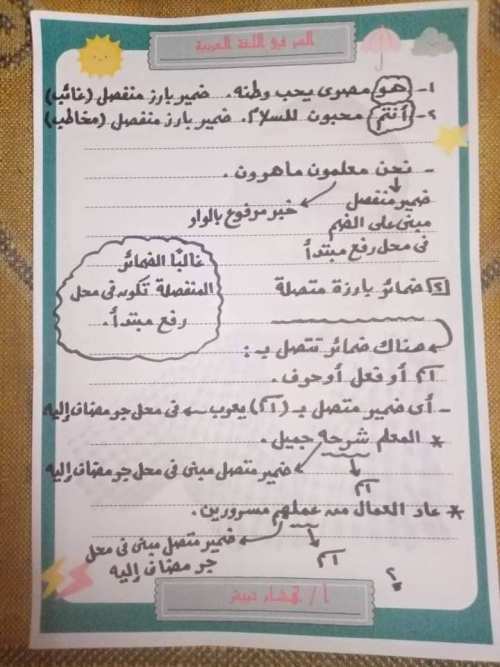 السر في اللغة العربية
١- هو مصرى يحب وطنه. ضمير بارز منفصل (غائب)
٢- أنتم محبون للسلام. ضمير بارز منفصل (مخاطب)
- نحن معلمون ماهرون.
ضمير منفصل
خبر مرفوع بالواو
مبنى على الضم
فى محل رفع مبتدأ
غالبًا الضمائر
المنفصلة تكون فى محل
رفع مبتدأ.
٢ ضمائر بارزة متصلة
هناك ضمائر تتصل بـ:
اسم أو فعل أو حرف.
- أى ضمير متصل بـ (اسم) يعرب فى محل جر مضاف إليه
* المعلم شرحه جميل.
ضمير متصل مبنى فى محل جر مضاف إليه
اسم
* عاد العمال من عملهم مسرورين.
ضمير متصل مبنى فى محل
جر مضاف إليه
اسم
٢
أ /